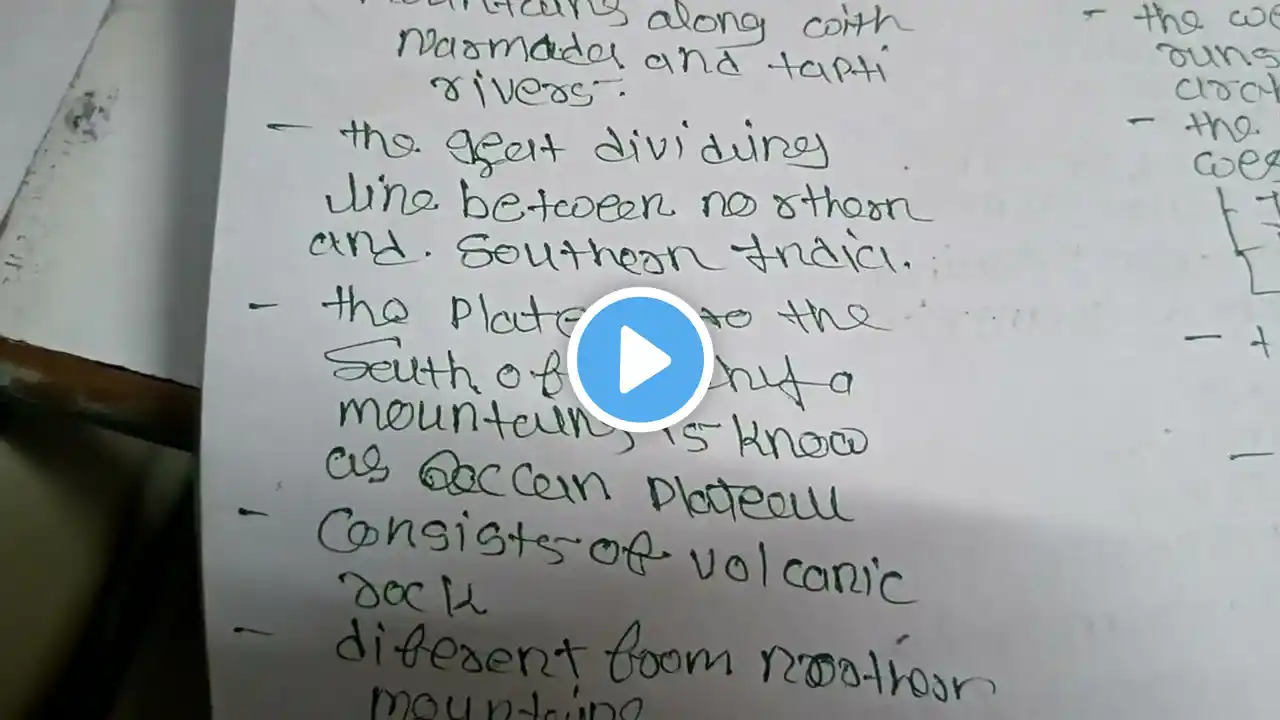 mountains along with
Narmada and tapti
rivers.
- the great dividing
line between northern
and. Southern India.
- the Plate to the
South of hya
mountains is know
as Deccan Plateau
- Consists of volcanic
rock
- diferent from northern
mountains
- the
runs
- the
- t
-